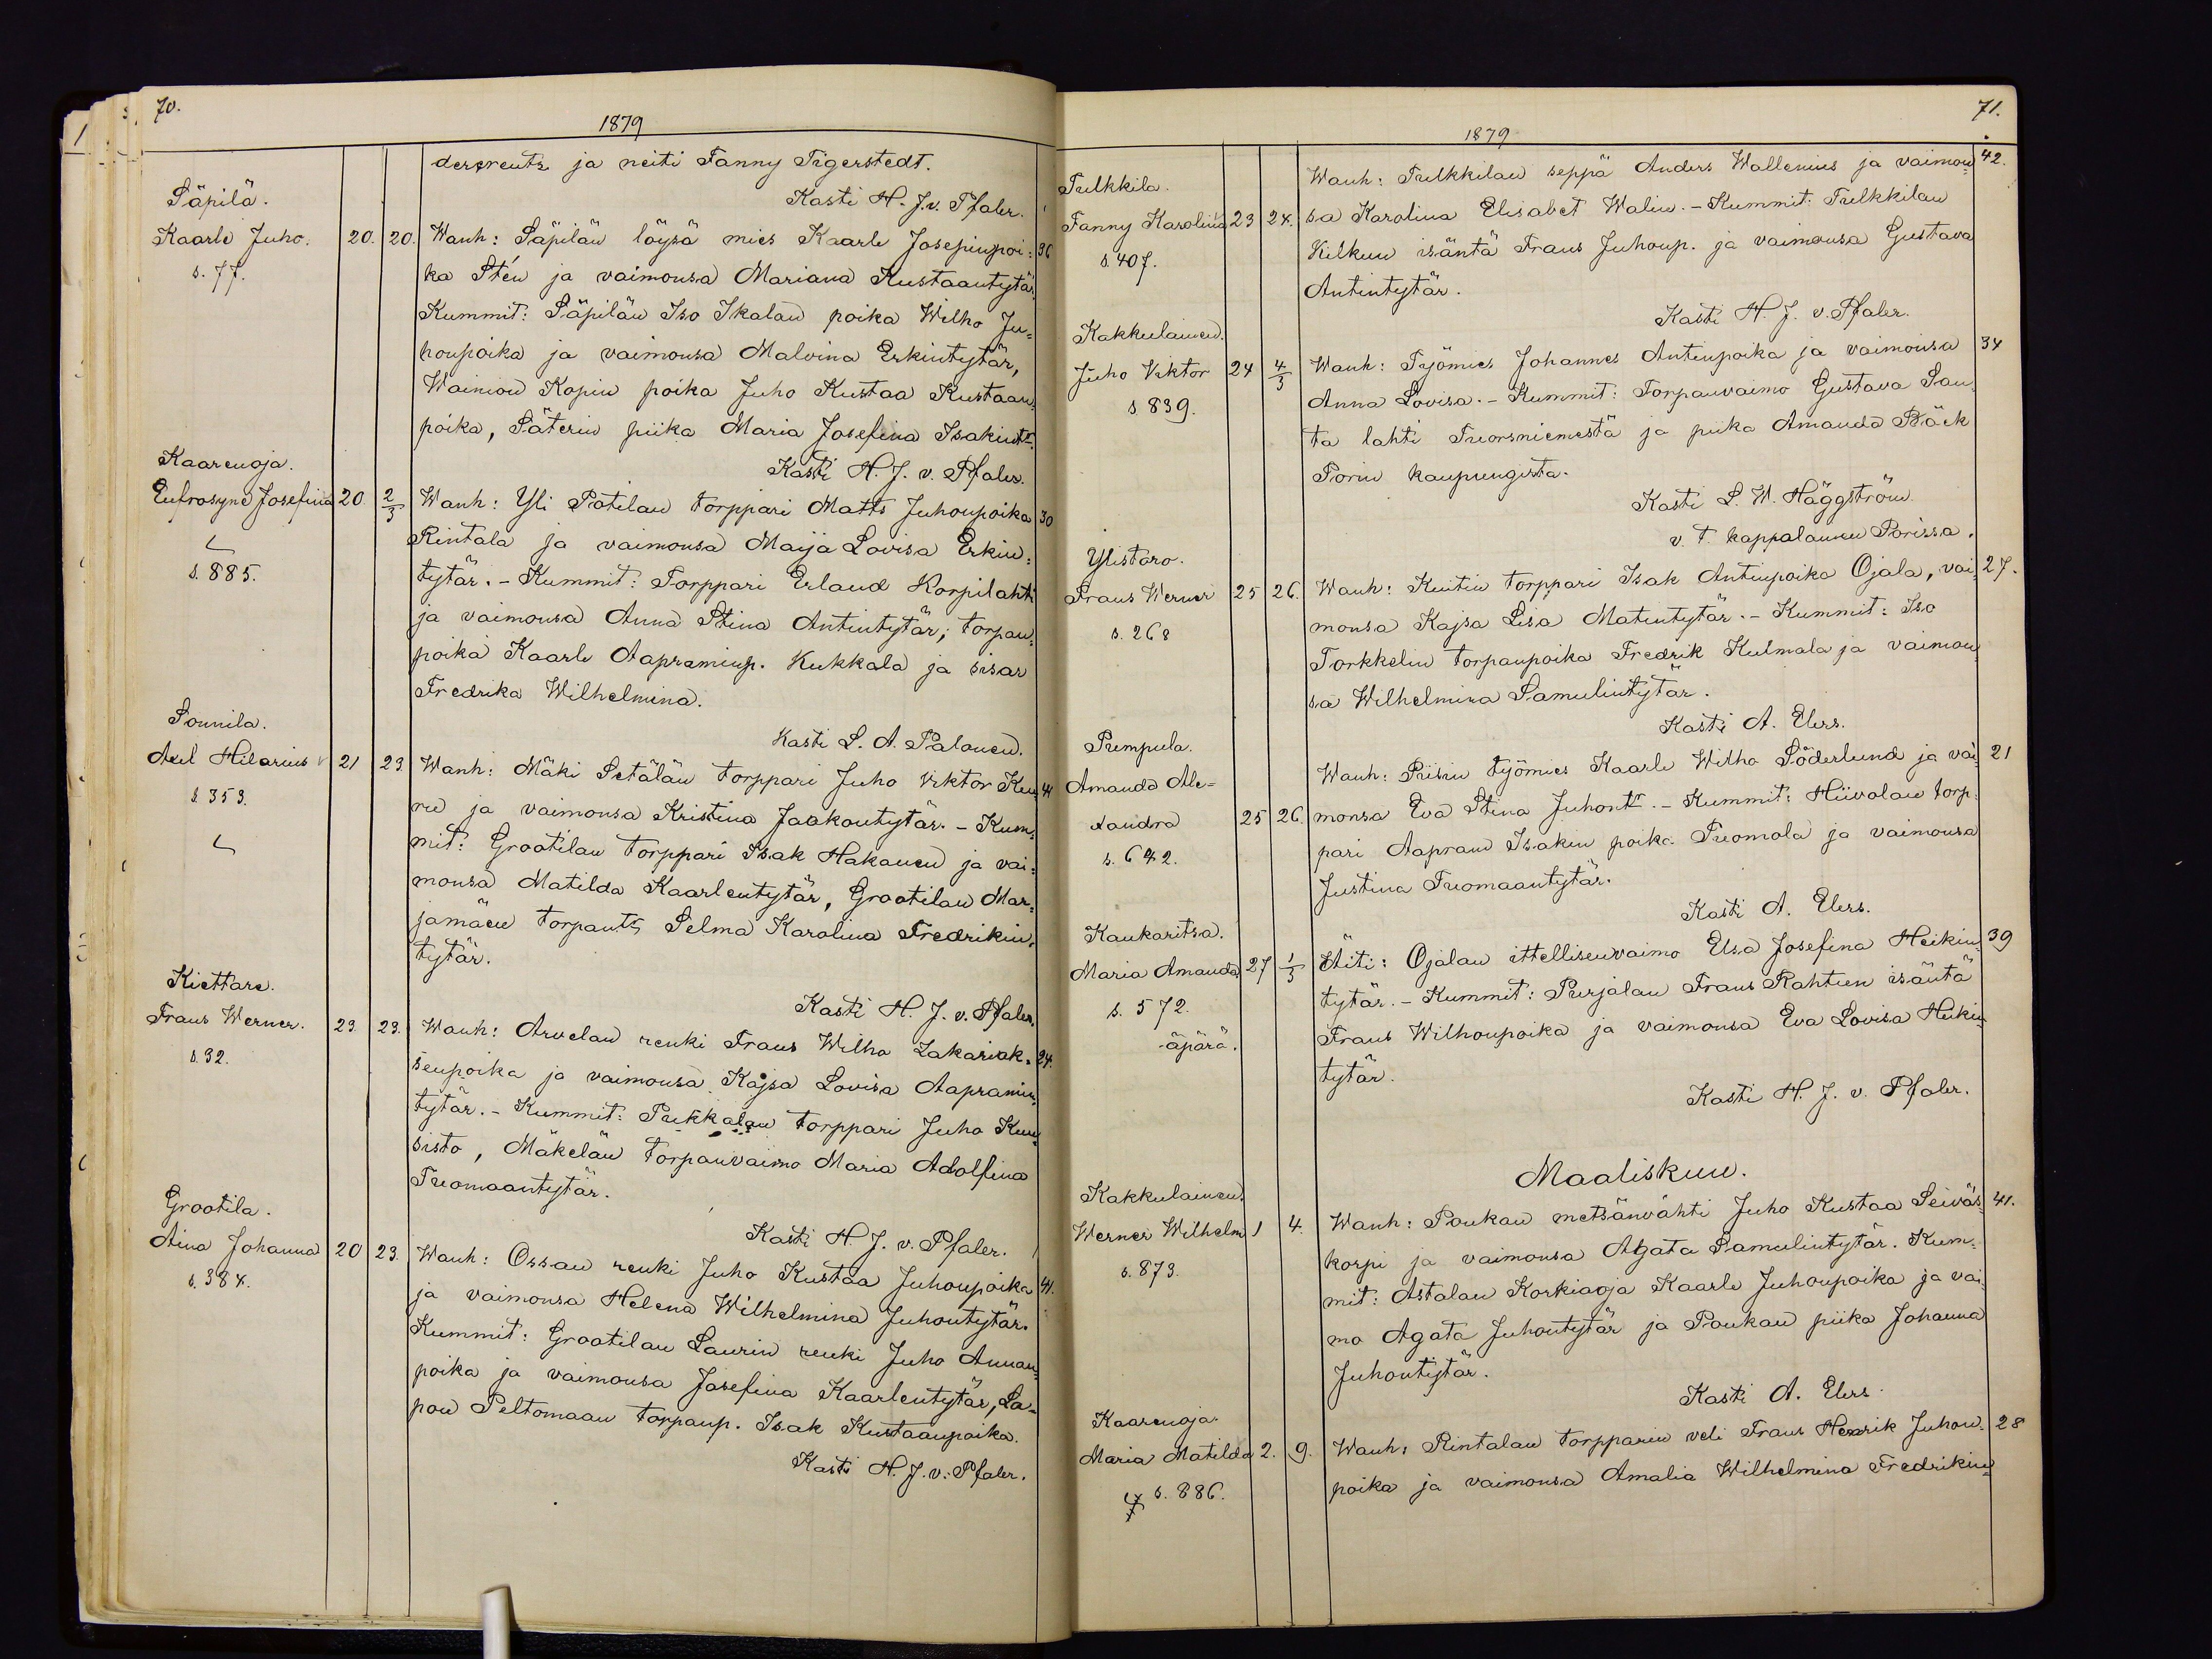 70.
1879
dercreutz ja neiti Fanny Tigerstedt.
Kasti H. J. v. Pfaler.
Säpilä.
Kaarle Juho. 20. 20. Wanh: Säpilän löysä mies Kaarle Josepinpoi= 36
s. 77.
ka Stén ja vaimonsa Mariana Kustaantytär.
Kummit: Säpilän Iso Ikalan poika Wilho Ju=
honpoika ja vaimonsa Malvina Erkintytär,
Wainion Kopin poika Juho Kustaa Kustaan=
poika, Säterin piika Maria Josefina Isakintr.
Kasti H. J. v. Pfaler.
Kaarenoja.
Eufrosyne Josefina 20 2/3 Wanh: Yli Potilan torppari Matts Juhonpoika 30
Rintala ja vaimonsa Maija Lovisa Erkin=
s. 885.
tytär. - Kummit: Torppari Erland Korpilahti
ja vaimonsa Anna Stina Antintytär, torpan=
poika Kaarle Aapraminp. Kukkala ja sisar
Fredrika Wilhelmina.
Kasti L. A. Palonen.
Sonnila.
Axel Hilarius 21 23 Wanh: Mäki Setälän torppari Juho Viktor Kuu= 41
s. 353.
ru ja vaimonsa Kristina Jaakontytär. - Kum=
mit: Grootilan torppari Isak Hakanen ja vai=
monsa Matilda Kaarlentytär, Grootilan Mar=
jamäen torpantr Selma Karolina Fredrikin=
tytär.
Kasti H. J. v. Pfaler.
Kiettare.
Frans Werner. 23. 23. Wanh: Arvelan renki Frans Wilho Zakariak= 24.
s. 32.
senpoika ja vaimonsa Kajsa Lovisa Aapramin=
tytär. - Kummit: Pukkalan torppari Juho Kuu=
sisto, Mäkelän torpanvaimo Maria Adolfina
Tuomaantytär.
Kasti H. J. v. Pfaler.
Grootila.
Aina Johanna 20 23. Wanh: Ossan renki Juho Kustaa Juhonpoika 41.
s. 384.
ja vaimonsa Helena Wilhelmina Juhontytär.
Kummit: Grootilan Laurin renki Juho Annan=
poika ja vaimonsa Josefina Kaarlentytär, La=
pon Peltomaan torpanp. Isak Kustaanpoika.
Kasti H. J. v. Pfaler.
71.
1879
Tulkkila.
Wanh: Tulkkilan seppä Anders Wallenius ja vaimon= 42.
Fanny Karolina 23 24. sa Karolina Elisabet Walin. - Kummit: Tulkkilan
s. 407.
Kilkun isäntä Frans Juhonp. ja vaimonsa Gustava
Antintytär.
Kasti H. J. v. Pfaler.
Kakkulainen.
Juho Viktor 24 4/3 Wanh: Työmies Johannes Antinpoika ja vaimonsa 34
s 839.
Anna Lovisa. - Kummit: Torpanvaimo Gustava San=
ta lahti Tuorsniemestä ja piika Amanda Bäck
Porin kaupungista.
Kasti L. W. Häggström
v. t. kappalainen Porissa.
Ylistaro.
Frans Werner 25 26. Wanh: Kuitin torppari Isak Antinpoika Ojala, vai= 27.
s. 268
monsa Kajsa Lisa Matintytär. - Kummit: Iso
Torkkelin torpanpoika Fredrik Kulmala ja vaimon=
sa Wilhelmina Samulintytär.
Kasti A. Elers.
Pumpula.
Wanh: Piisin työmies Kaarle Wilho Söderlund ja vai= 21
Amanda Ale=
xandra 25 26. monsa Eva Stina Juhontr. - Kummit: Hiivolan torp=
s. 642.
pari Aapram Isakin poika Tuomola ja vaimonsa
Justina Tuomaantytär.
Kasti A. Elers.
Kaukaritsa.
Maria Amanda 27 1/3 Äiti: Ojalan ittellisenvaimo Elsa Josefina Heikin= 39
s. 572.
tytär. - Kummit: Purjalan Frans Rahtun isäntä
äpärä.
Frans Wilhonpoika ja vaimonsa Eva Lovisa Heikin=
tytär.
Kasti H. J. v. Pfaler.
Maaliskuu.
Kakkulainen.
Werner Wilhelm 1 4. Wanh: Poukan metsänvahti Juho Kustaa Seiväs= 41.
s. 873.
korpi ja vaimonsa Agata Samulintytär. Kum=
mit: Astalan Korkiaoja Kaarle Juhonpoika ja vai=
mo Agata Juhontytär ja Poukan piika Johanna
Juhontytär.
Kasti A. Elers.
Kaarenoja.
Maria Matilda 2. 9. Wanh: Rintalan torpparin veli Frans Henrik Juhon= 28
s. 886.
poika ja vaimonsa Amalia Wilhelmina Fredrikin=